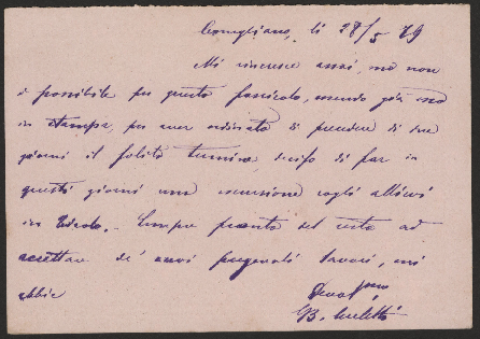 Conegliano, li 28/5 79
Mi rincresce assai, ma non
è possibile per questo fascicolo, essendo già
in stampa, per aver ordinato di prendere di due
giorni il solito termine di far in
questi giorni una escursione cogli allievi
in Tirolo. - Sempre pronto del resto ad
accettare de' suoi pregevoli lavori, mi
abbia
Devot.mo
B.